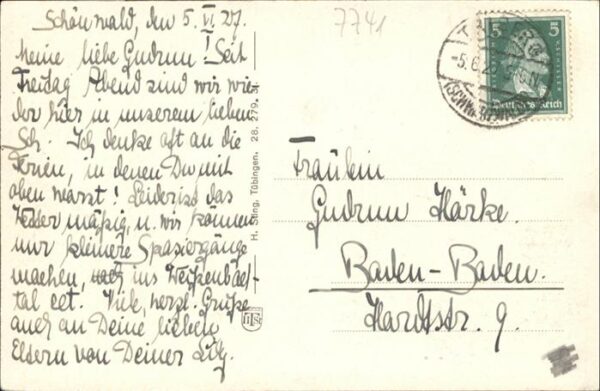 Schönwald, den 5. VI. 27.
Meine liebe Gudrun! Seit
Freitag Abend sind wir wie-
der hier in unserem lieben
Sch. Ich denke oft an die
Ferien, in denen Du mit
oben warst! Leider ist das
Wetter mäßig, u. wir können
nur kleinere Spaziergänge
machen, ins
tal ect. Viele, herzl. Grüße
auch an Deine lieben
Eltern von Deiner
H. Sting, Tübingen. 28. 279.
7741
5 5
Deutsches Reich
-5.6.2
(SCHWARZWALD)
Fräulein
Gudrun Härke
Baden-Baden.
Hardtstr. 9.